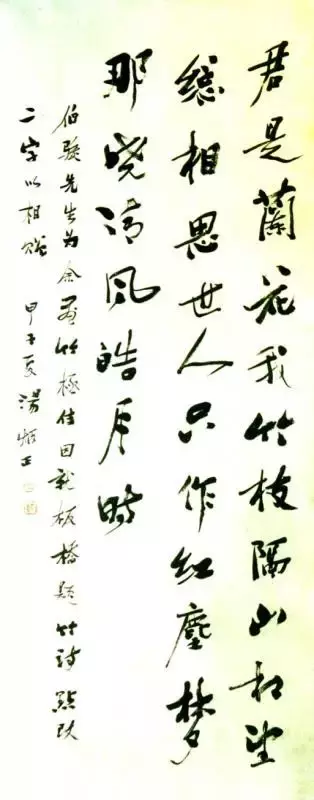 君是蘭花我竹枝隔山相望
總相思世人只作紅塵夢
那曉清風皓月時
伯駿先生为余畫竹極佳因就板橋題竹詩點改
二字以相贈 甲子夏湯炳正